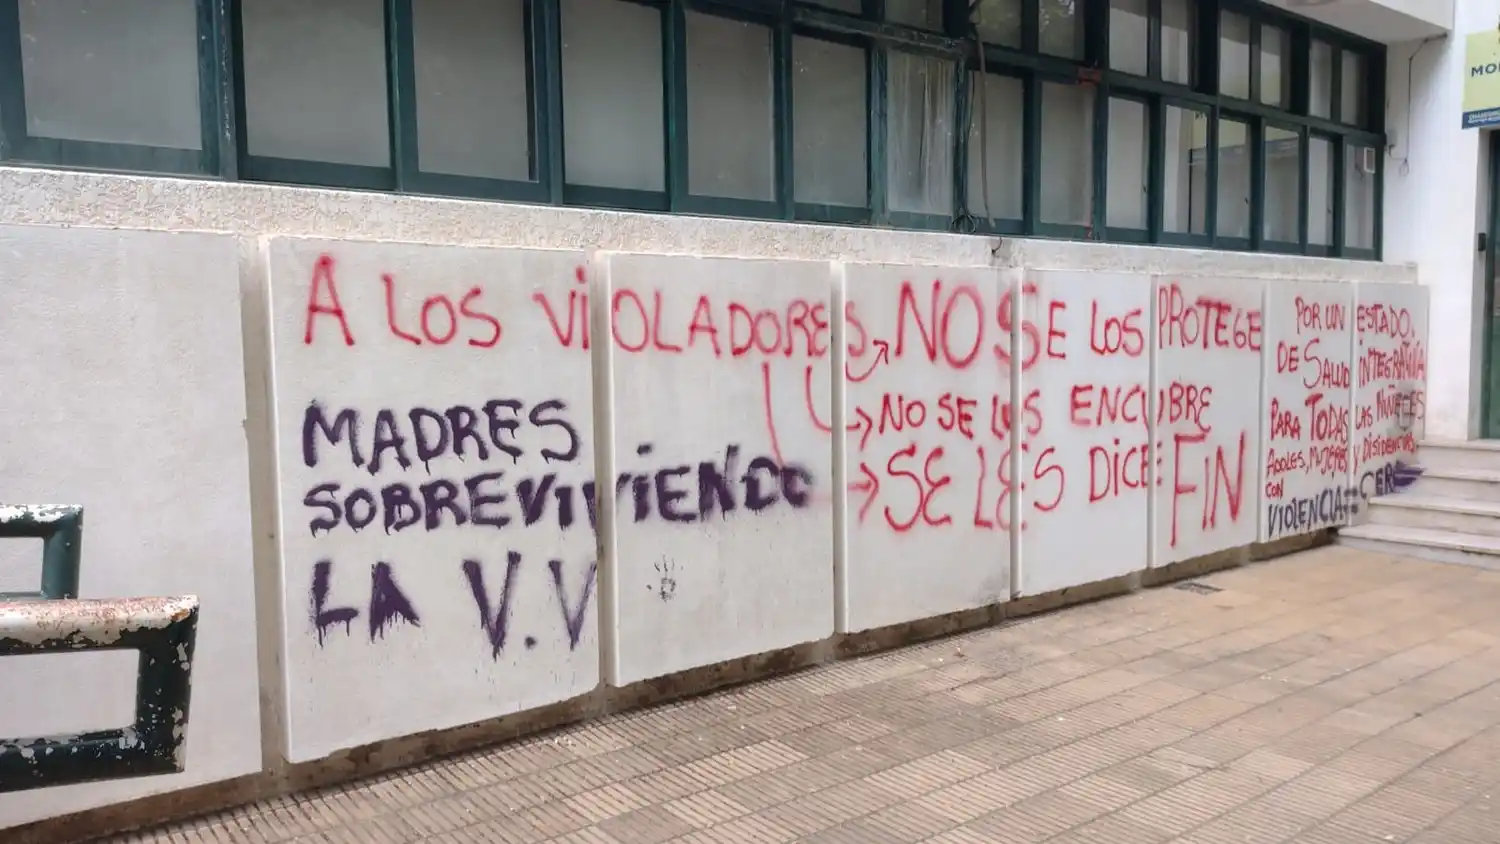 A LOS VIOLADORES NO SE LOS PROTEGE
NO SE LOS ENCUBRE
SE LES DICE FIN
MADRES
SOBREVIVIENDO
LA V.V
POR UN ESTADO.
DE SALUD INTEGRATIVA
PARA TODAS LAS NIÑECES
ADOLES, MUJERES Y DISIDENCIAS.
CON
VIOLENCIA CERO